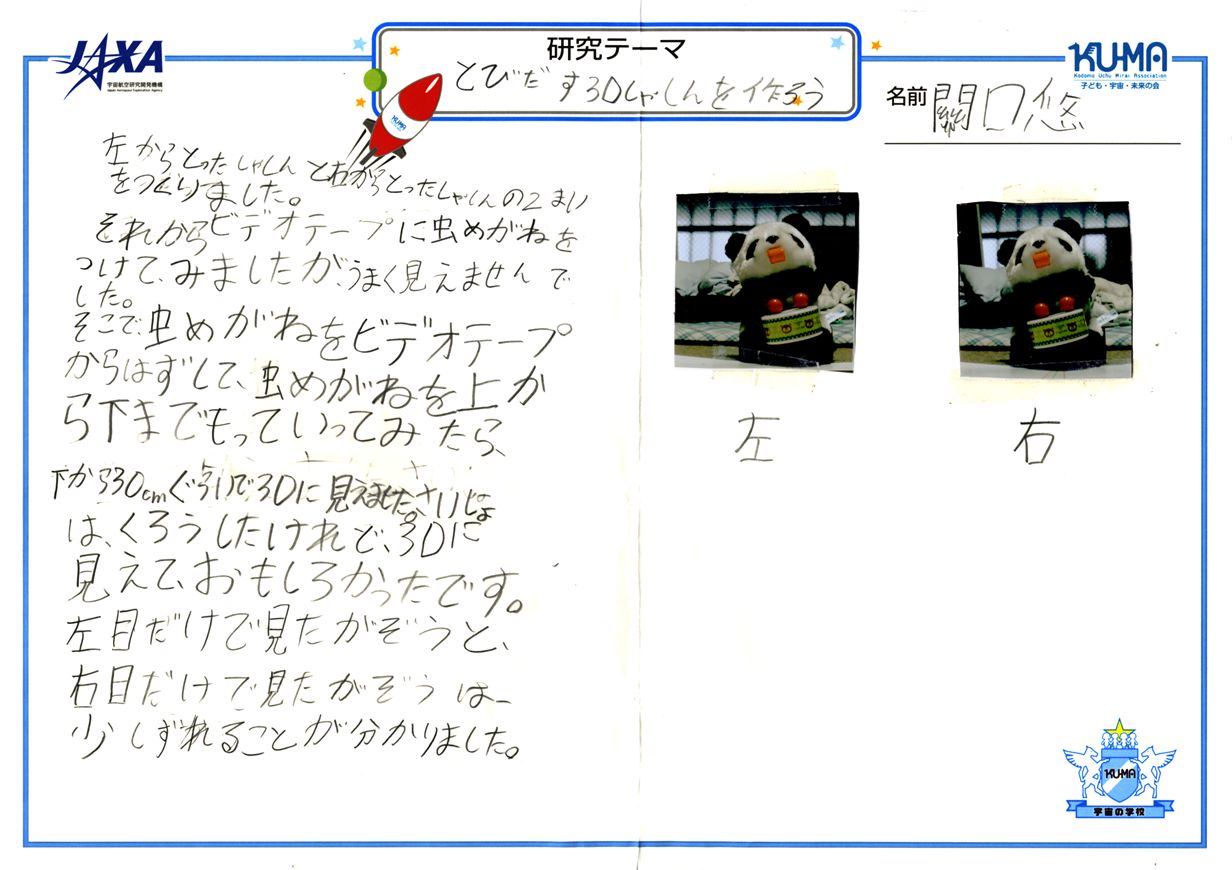 JAXA
宇宙航空研究開発機構
Japan Aerospace Exploration Agency
研究テーマ
とびだす3Dしゃしんを作ろう
KUMA
KUMA
Kodomo Uchu Mirai Association
子ども・宇宙・未来の会
名前 關口悠
左からとったしゃしんと右からとったしゃしんの2まい
をつくりました。
それからビデオテープに虫めがねを
つけて、みましたが、うまく見えませんで
した。
そこで、虫めがねをビデオテープ
からはずして、虫めがねを上か
ら下までもっていってみたら、
下から30cmぐらいで3Dに見えました。さいしょ
は、くろうしたけれど、3Dに
見えて、おもしろかったです。
左目だけで見たがぞうと、
右目だけで見たがぞうは、
少しずれることが分かりました。
左
右
KUMA
宇宙の学校